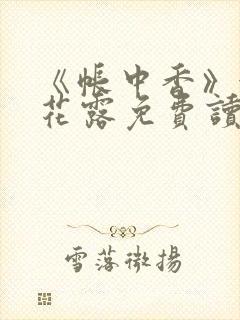 《帳中香》
花露免費讀
雪落微揚